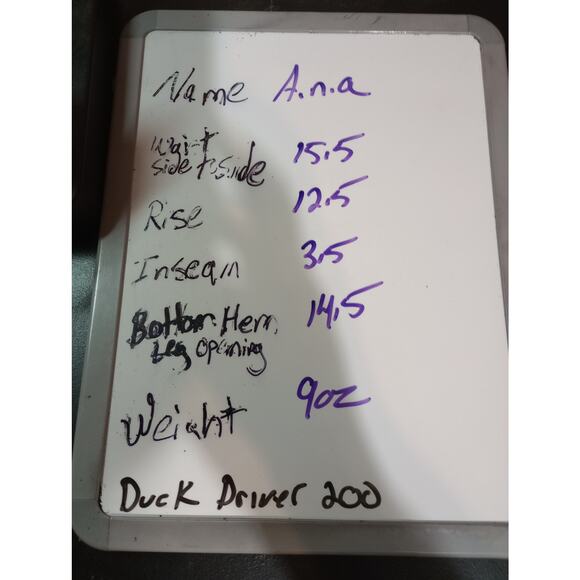 Name A.n.a
Waist
side to side 15.5
Rise 12.5
Inseam 3.5
Bottom Hem 14.5
Leg Opening
Weight 9oz
Duck Driver 200